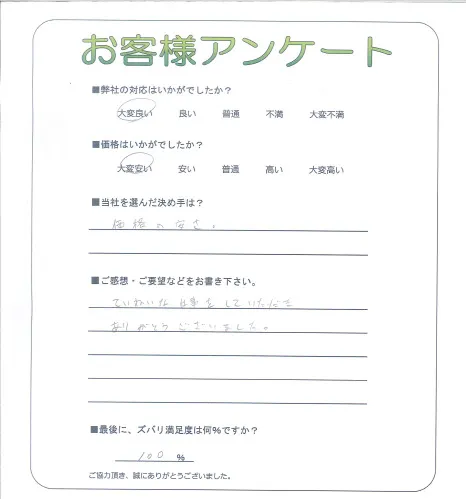 お客様アンケート
■弊社の対応はいかがでしたか？
大変良い 良い 普通 不満 大変不満
■価格はいかがでしたか？
大変安い 安い 普通 高い 大変高い
■当社を選んだ決め手は？
価格の安さ。
■ご感想・ご要望などをお書き下さい。
ていねいな仕事をしていただき
ありがとうございました。
■最後に、ズバリ満足度は何%ですか？
100 %
ご協力頂き、誠にありがとうございました。